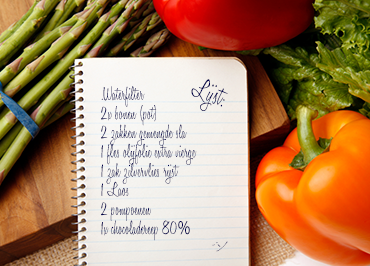 Lijst:
Waterfilter
2x bonen (pot)
2 zakken gemengde sla
1 fles olijfolie extra vierge
1 zak zilvervlies rijst
1 Laos
2 pompoenen
1x chocoladereep 80%
:)